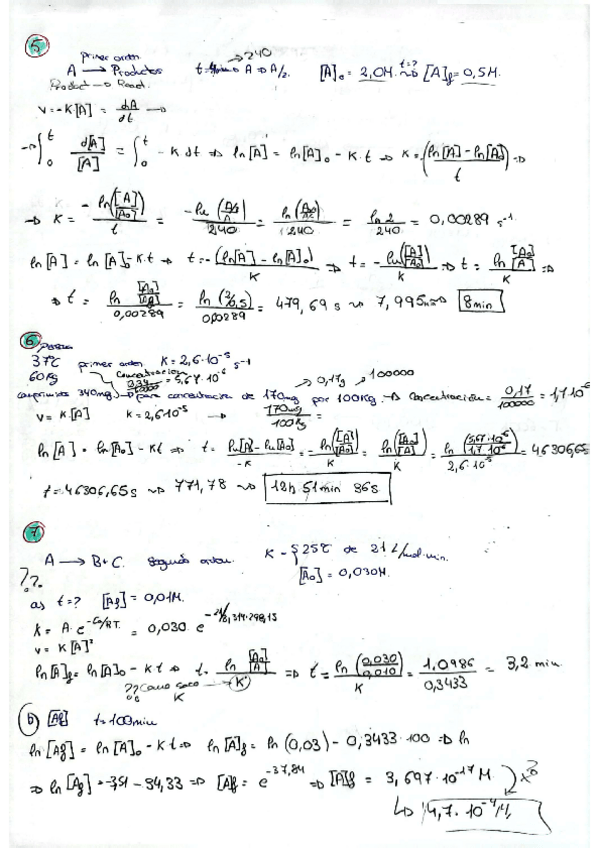 5
Primer orden → 240
A → Productos t A ⇒ A/2. [A]₀ = 2,0M. t=? ⇝ [A]f = 0,5M.
Product → React.
v = -K[A] = dA/dt →
→ ∫₀ᵗ d[A]/[A] = ∫₀ᵗ -K dt ⇒ ln[A] = ln[A]₀ - K·t ⇒ K = (ln[A] - ln[A₀])/t ⇒
⇒ K = -ln([A]/[A₀])/t = -ln(A/2/A)/240 = ln(A/A/2)/240 = ln 2/240 = 0,00289 s⁻¹
ln[A] = ln[A]₀ - K·t ⇒ t = -(ln[A] - ln[A]₀)/K ⇒ t = -ln([A]/[A₀])/K ⇒ t = ln [A₀]/[A]/K ⇒
⇒ t = ln [A₀]/[Af]/0,00289 = ln(2/0,5)/0,00289 = 479,69 s ⇝ 7,995 ⇒ 8min
6
37ºC primer orden K = 2,6·10⁻⁵ s⁻¹
60Kg Concentracion = 5,67·10⁻⁶ → 0,17g → 100000
comprimido 340mg para concentracion de 170mg por 100Kg → Concentracion = 0,17/100000 = 1,7·10⁻⁶
v = K[A] K = 2,6·10⁻⁵ → 170mg/100Kg =
ln[A] = ln[A₀] - Kt ⇒ t = ln[A] - ln[A₀]/-K = -ln([A]/[A₀])/K = ln([A₀]/[A])/K = ln(5,67·10⁻⁶/1,7·10⁻⁶)/2,6·10⁻⁵ = 46306,65
t = 46306,65s ⇝ 771,78 ⇝ 12h 51min 36s
7
A → B+C. Segundo orden. K 25ºC de 21 L/mol·min.
[A₀] = 0,030M.
??
a) t=? [Af] = 0,01M.
K = A·e^-Ea/RT = 0,030·e^-21/8,314·298,15
v = K[A]²
ln[A]f = ln[A]₀ - Kt ⇒ t = ln [A₀]/[A]/K ⇒ t = ln(0,030/0,010)/K = 1,0986/0,3433 = 3,2 min.
?? Como saco K
b) [Af] t = 100min
ln[Af] = ln[A]₀ - Kt ⇒ ln[A]f = ln(0,03) - 0,3433·100 ⇒ ln
⇒ ln[Af] = -3,51 - 34,33 ⇒ [A]f = e^-37,84 ⇒ [A]f = 3,697·10⁻¹⁷ M
↳ 4,7·10⁻⁴M.